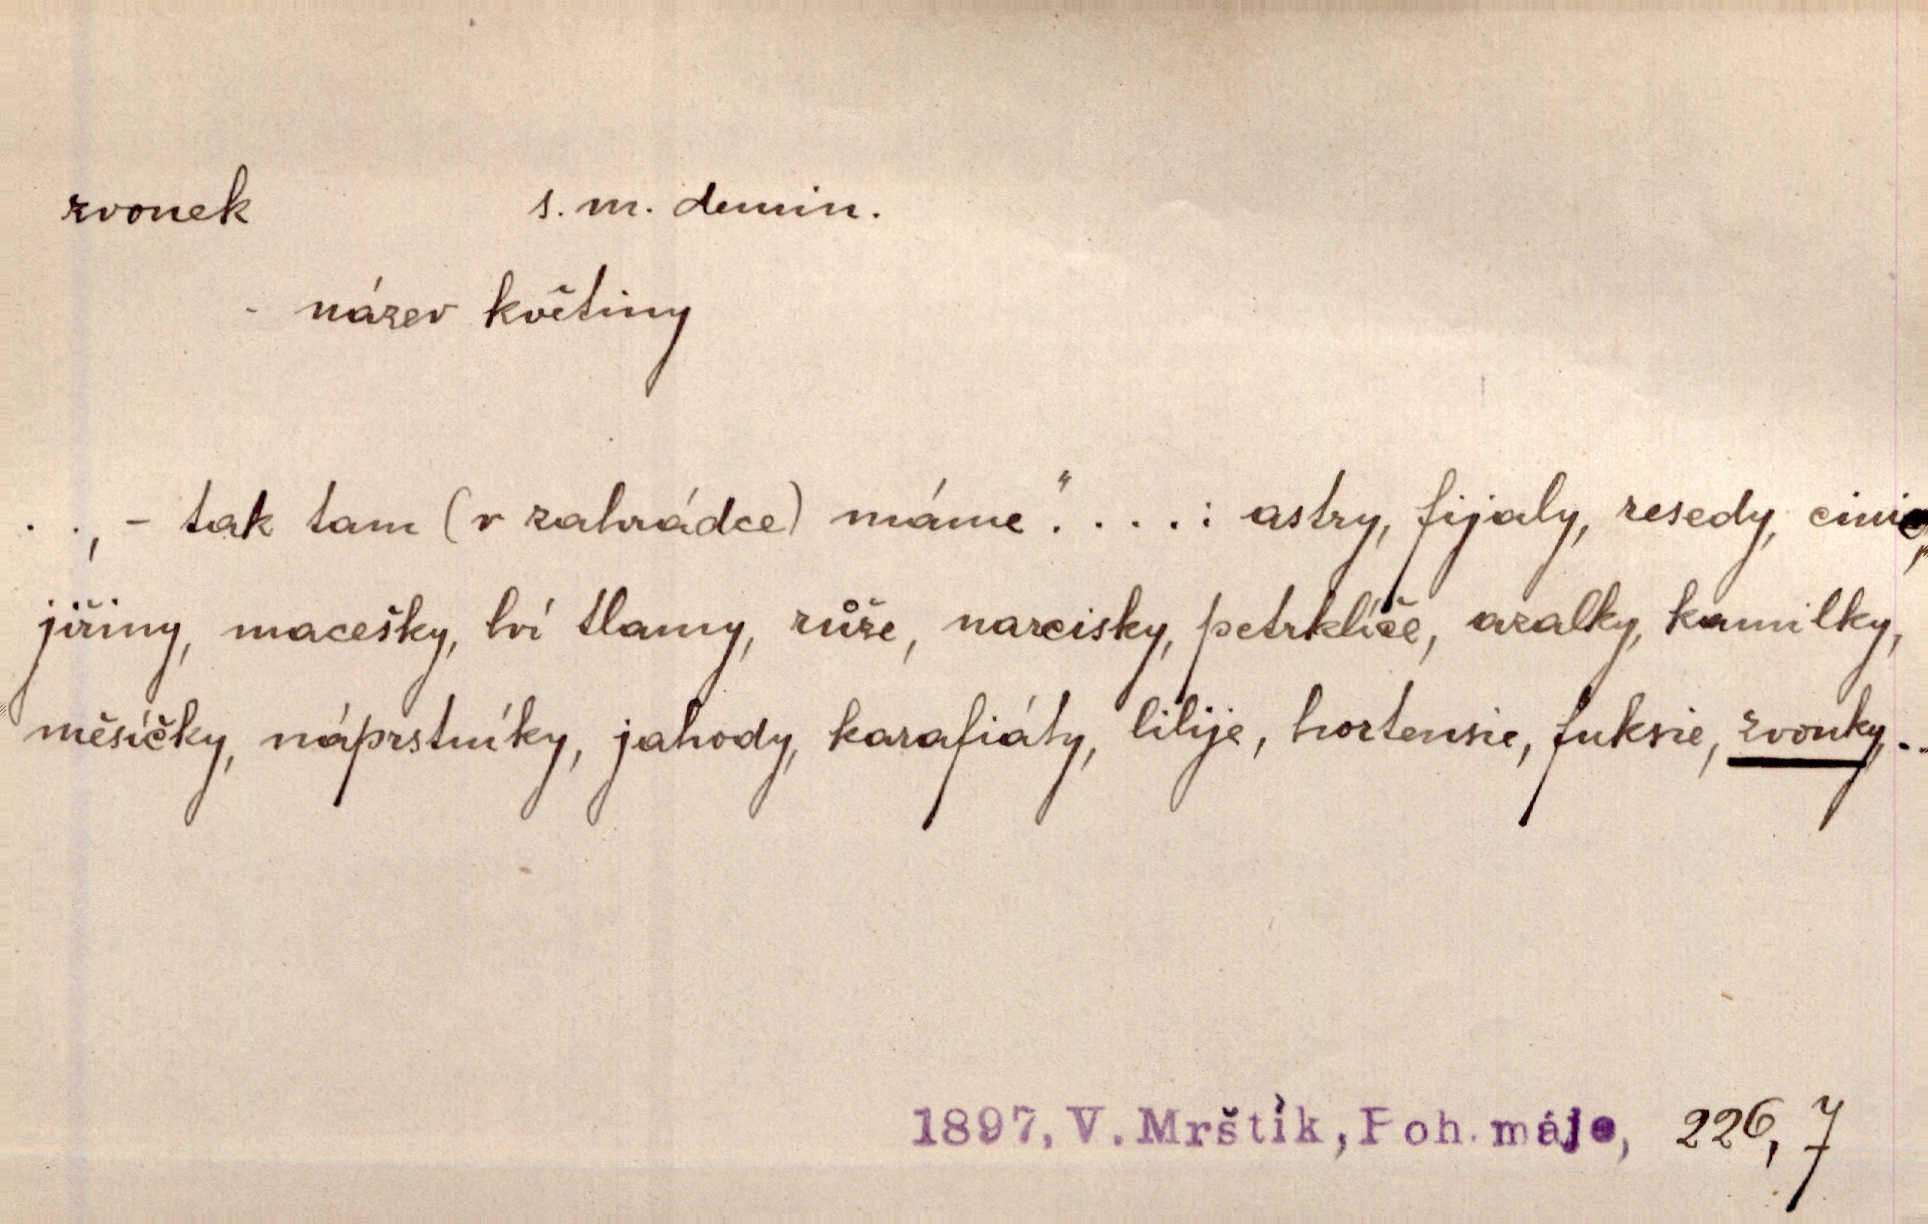 zvonek s. m. demin.
- název květiny
. . , – tak tam (v zahrádce) máme". . . . : astry, fijaly, resedy, cinie,
jiřiny, macešky, lví tlamy, růže, narcisky, petrklíče, azalky, kamilky,
měsíčky, náprstníky, jahody, karafiáty, lilije, hortensie, fuksie, zvonky, . .
1897, V. Mrštík, Poh. máje, 226, 7